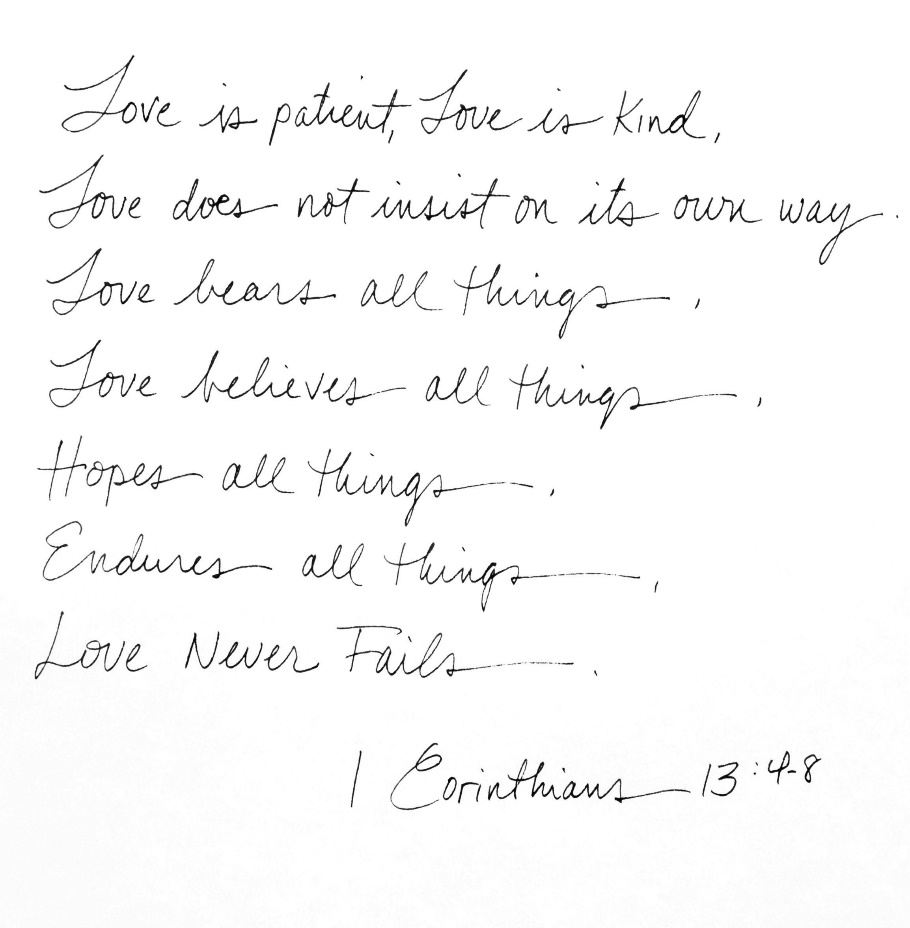 Love is patient, Love is Kind,
Love does not insist on its own way.
Love bears all things,
Love believes all things,
Hopes all things,
Endures all things,
Love Never Fails.
1 Corinthians 13:4-8